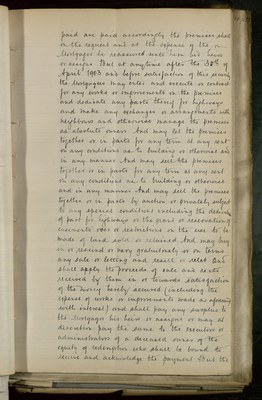 paid are paid accordingly the premises shall
on the request and at the expense of the
Mortgagor be reassured unto him his heirs
or assigns But at any time after the 30th of
April 1903 and before satisfaction of this security
the Mortgagees may enter and execute or contract
for any works or improvements in the premises
and dedicate any parts thereof for highways
and make any exchanges or arrangements with
neighbours and otherwise manage the premises
as absolute owners And may let the premises
together or in parts for any term at any rent
on any conditions as to building or otherwise and
in any manner And may sell the premises
together or in parts for any term at any rent
on any conditions as to building or otherwise
and in any manner And may sell the premises
together or in parts by auction or privately subject
to any special conditions including the leaving
of part for highways or the grant or reservation of
easements over or restrictions on the use to be
made of land sold or retained And may buy
in or rescind or vary gratuitously or on terms
any sale or letting and resell or relet And
shall apply the proceeds of sale and rents
received by them in or towards satisfaction
of the money hereby secured (including the
expense of works or improvements made as aforesaid
with interest) and shall pay any surplus to
the Mortgagor his heirs or assigns or may at
discretion pay the same to the executors or
administrators of a deceased owner of the
equity of redemption who shall be bound to
receive and acknowledge the payment But the